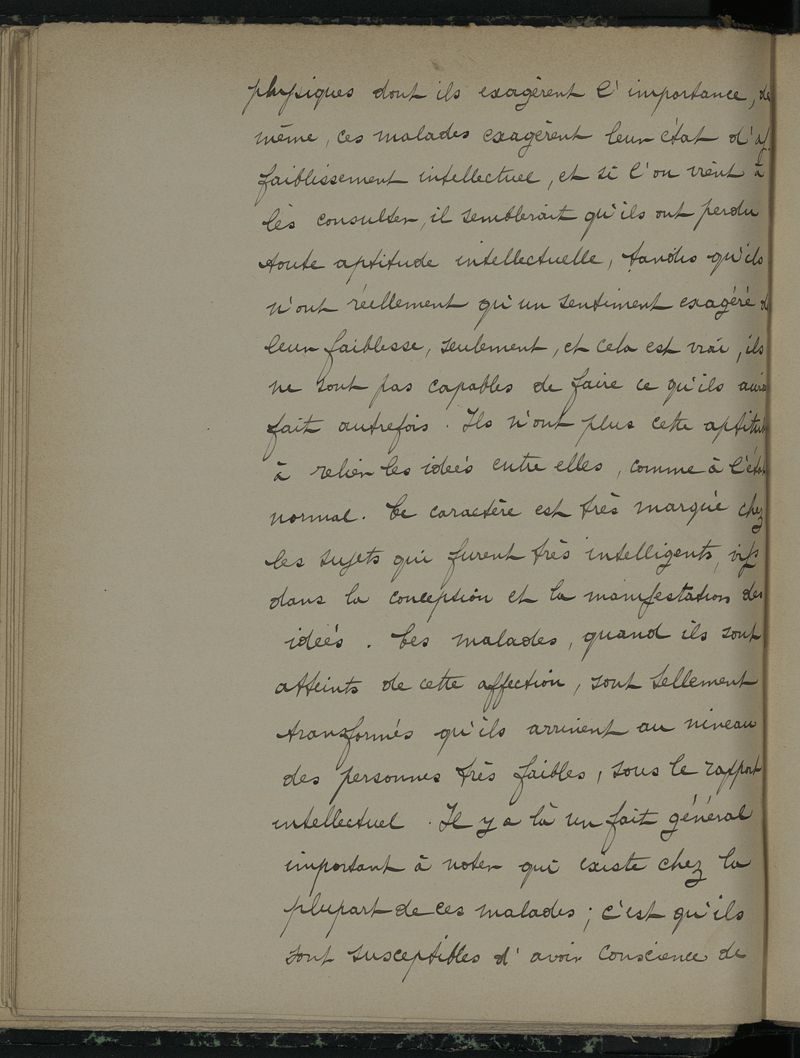 physiques dont ils exagèrent l'importance, de
même, ces malades exagèrent leur état d'af
faiblissement intellectuel, et si l'on vient à
les consulter, il semblerait qu'ils ont perdu
toute aptitude intellectuelle, tandis qu'ils
n'ont réellement qu'un sentiment exagéré d
leur faiblesse, seulement, et cela est vrai, ils
ne sont pas capables de faire ce qu'ils aura
fait autrefois. Ils n'ont plus cette aptitud
à relier les idées entre elles, comme à l'éta
normal. Ce caractère est très marqué chez
les sujets qui furent très intelligents, vifs
dans la conception et la manifestation des
idées. Ces malades, quand ils sont
atteints de cette affection, sont tellement
transformés qu'ils arrivent au niveau
des personnes très faibles, sous le rapport
intellectuel. Il y a là un fait général
important à noter qui existe chez la
plupart de ces malades; c'est qu'ils
sont susceptibles d'avoir conscience de